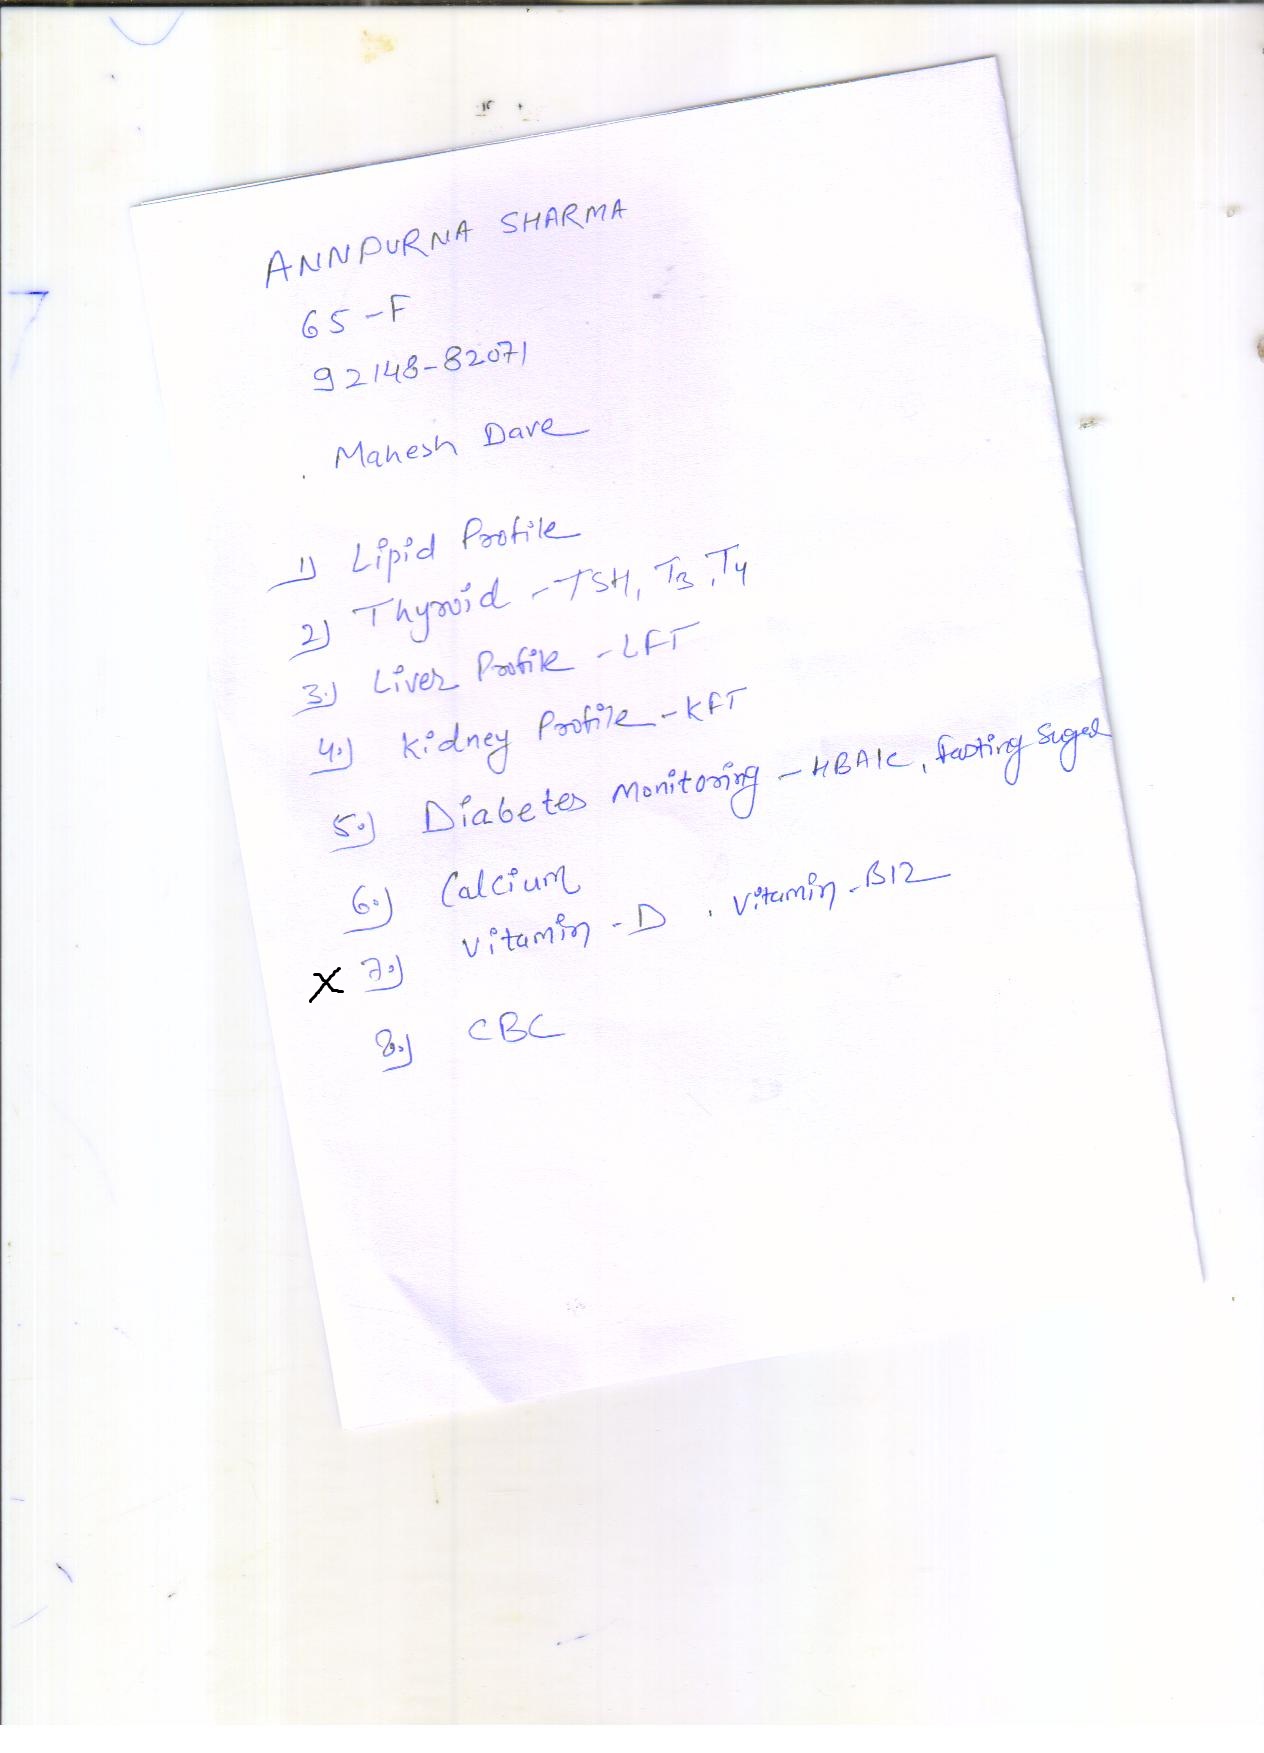 ANNPURNA SHARMA
65-F
92148-82071
Mahesh Dave
1) Lipid Profile
2) Thyroid - TSH, T3, T4
3.) Liver Profile - LFT
4.) Kidney Profile - KFT
5.) Diabetes Monitoring - HBA1C, fasting Suger
6.) Calcium
X 7.) Vitamin - D, Vitamin - B12
8.) CBC